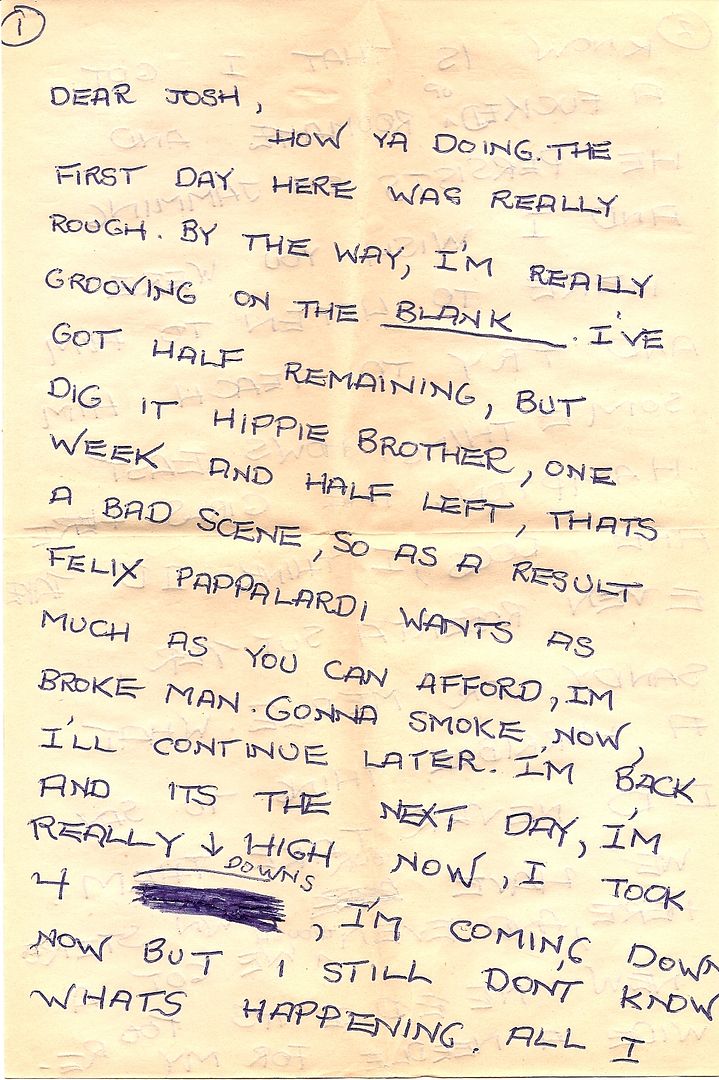 1
DEAR JOSH,
HOW YA DOING. THE
FIRST DAY HERE WAS REALLY
ROUGH. BY THE WAY, I'M REALLY
GROOVING ON THE BLANK. I'VE
GOT HALF REMAINING, BUT
DIG IT HIPPIE BROTHER, ONE
WEEK AND HALF LEFT, THATS
A BAD SCENE, SO AS A RESULT
FELIX PAPPALARDI WANTS AS
MUCH AS YOU CAN AFFORD, IM
BROKE MAN. GONNA SMOKE NOW,
I'LL CONTINUE LATER. I'M BACK
AND ITS THE NEXT DAY, I'M
REALLY ↓ HIGH NOW, I TOOK
4 DOWNS, I'M COMING DOWN
NOW BUT I STILL DON'T KNOW
WHATS HAPPENING. ALL I